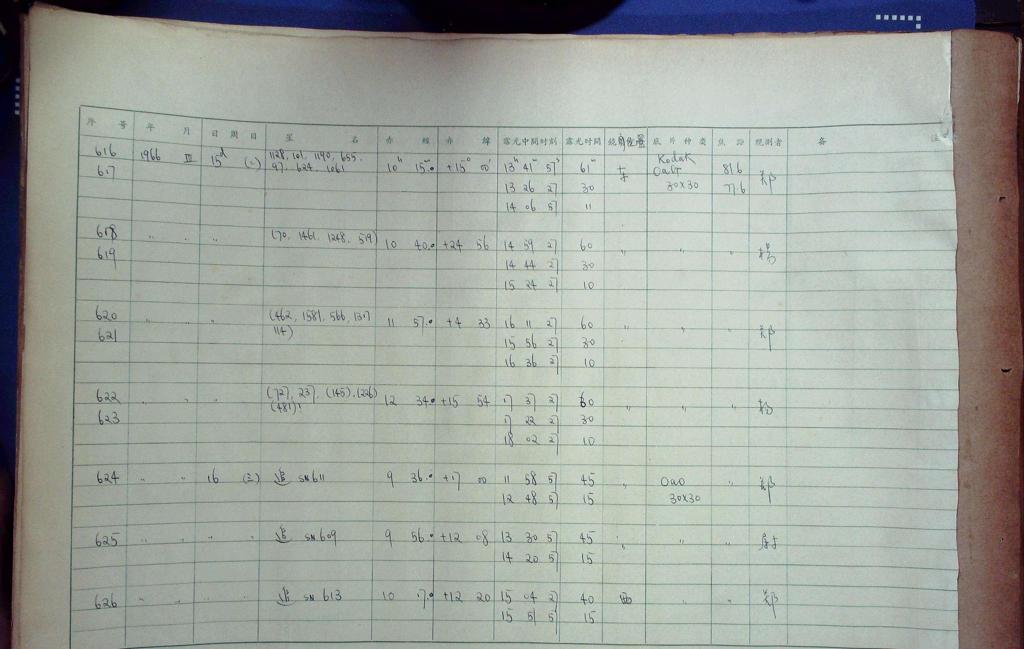 序 号 年 月 日 周 日 星 名 赤 经 赤 纬 露光中间时刻 露光时间 镜筒位置 底片种类 焦距 观测者 备 注
616 1966 III 15d (二) 1128, 101, 1190, 655, 10h 15m.0 +15° 00' 13h 41m 57s 61m 东 Kodak 81.6 郑
617 97, 624, 1061 OaO 77.6
13 26 27 30 30×30
14 06 57 11
618 " " " (70, 1461, 1248, 519) 10 40.0 +24 56 14 59 27 60 " " " 杨
619 14 44 27 30
15 24 27 10
620 " " (462, 1581, 566, 1317 11 57.0 +4 33 16 11 27 60 " " 郑
621 114) 15 56 27 30
16 36 27 10
622 " " " (727, 237, (145), (226) 12 34.0 +15 54 17 37 27 60 " " " 杨
623 (481)! 17 22 27 30
18 02 27 10
624 " " 16 (三) 追 SN611 9 36.0 +17 00 11 58 57 45 " OaO " 郑
12 48 57 15 30×30
625 " " " " 追 SN609 9 56.0 +12 08 13 30 57 45 " " "
14 20 57 15
626 " " 追 SN613 10 17.0 +12 20 15 04 27 40 西 " " 郑
15 51 57 15